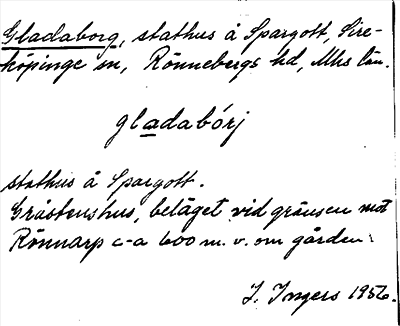 Gladaborg, stathus å Spargott, Sire-
köpinge sn, Rönnebergs hd, Mhs län.
gladabórj
stathus å Spargott.
Gråstenshus, beläget vid gränsen mot
Rönnarp c-a 600 m. v. om gården.
I. Ingers 1956.